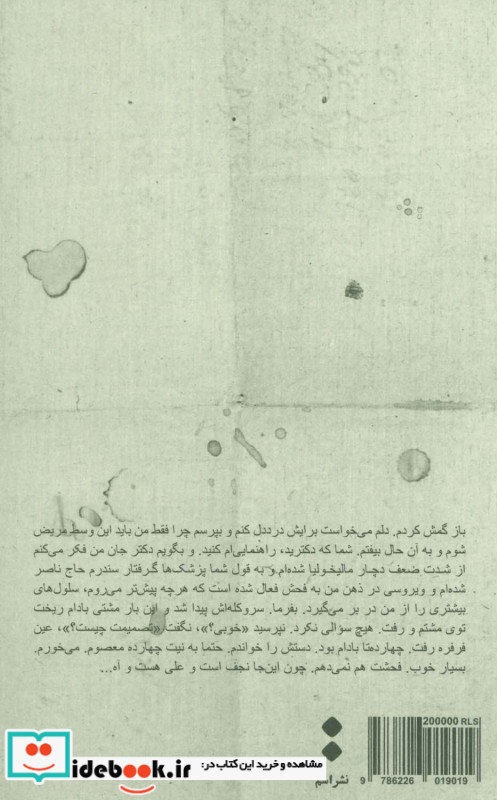 باز گمش کردم. دلم می‌خواست برایش درددل کنم و بپرسم چرا فقط من باید این وسط مریض
شوم و به آن حال بیفتم. شما که دکترید، راهنمایی‌ام کنید. و بگویم دکتر جان من فکر می‌کنم
از شدت ضعف دچار مالیخولیا شده‌ام و به قول شما پزشک‌ها گرفتار سندرم حاج ناصر
شده‌ام و ویروسی در ذهن من به فحش فعال شده است که هرچه پیش‌تر می‌روم، سلول‌های
بیشتری را از من در بر می‌گیرد. بفرما. سروکله‌اش پیدا شد و این بار مشتی بادام ریخت
توی مشتم و رفت. هیچ سؤالی نکرد. نپرسید «خوبی؟»، نگفت «تصمیمت چیست؟»، عین
فرفره رفت. چهارده‌تا بادام بود. دستش را خواندم. حتما به نیت چهارده معصوم. می‌خورم.
بسیار خوب. فحشت هم نمی‌دهم. چون این‌جا نجف است و علی هست و آه...
200000 RLS
9 786226 019019
نشر اسم
مشاهده و خرید این کتاب در:
idebook.ir